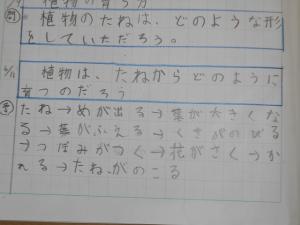 植物の育ち方
問 植物のたねは、どのような形
をしていただろう。
6/11 植物は、たねからどのように
育つのだろう
予 たね→めが出る→葉が大きくな
る→葉がふえる→くきがのびる
→つぼみがつく→花がさく→か
れる→たねがのこる